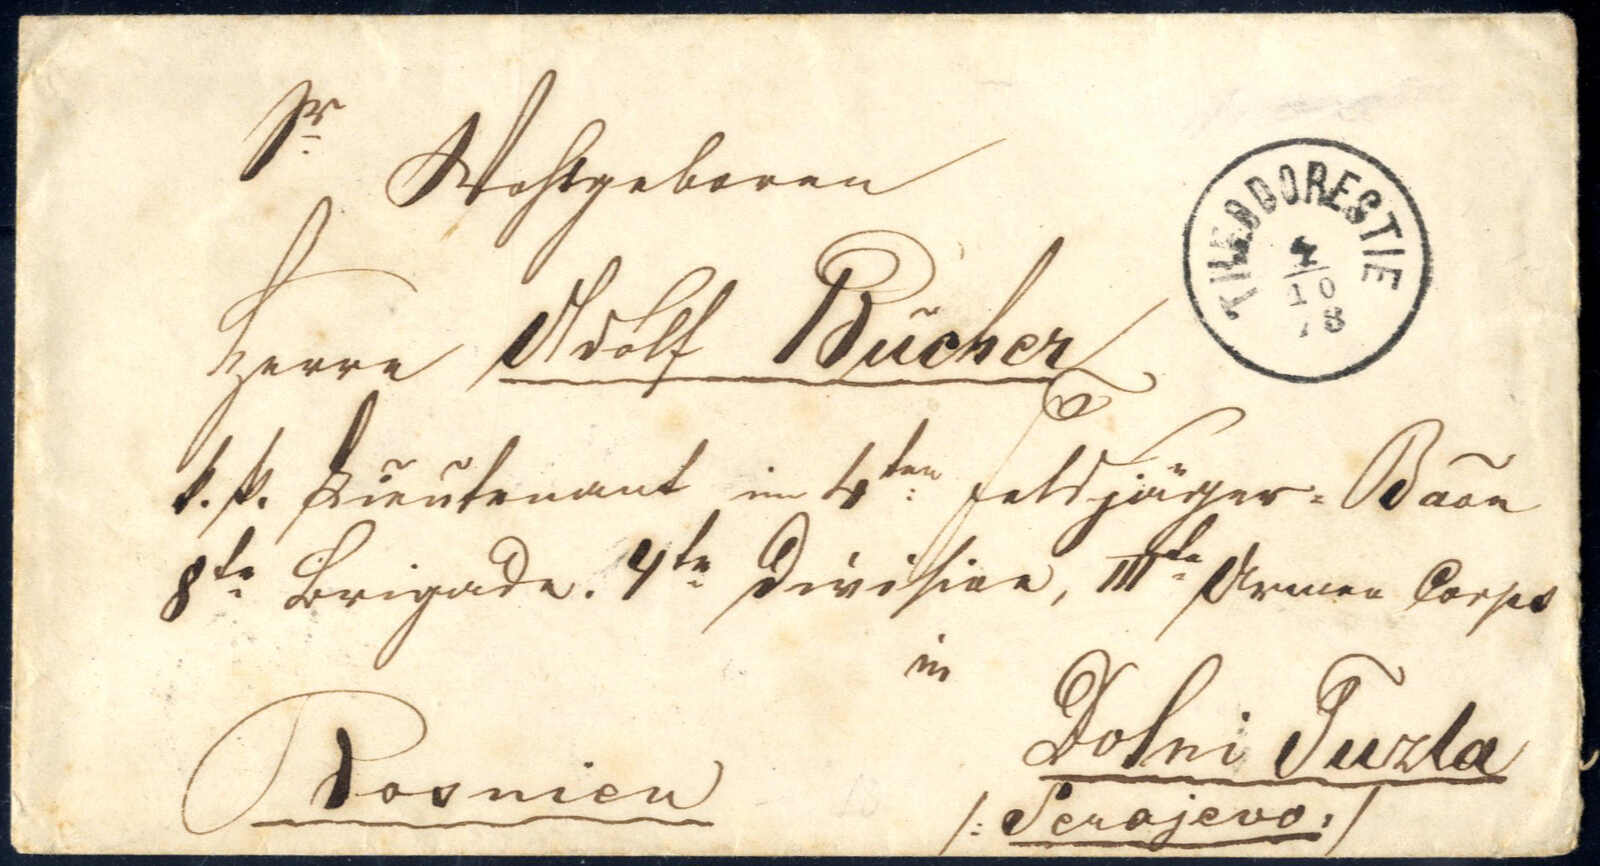 Sr
Wohlgeboren
Herrn Adolf Bucher
k. k. Lieutenant im 4ten Feldjäger-Baon
8te Brigade. 4te Division, IIIte Armee Corps
in
Dolni Tuzla
Bosnien
/: Serajevo :/
DORESTIE
4
10
78